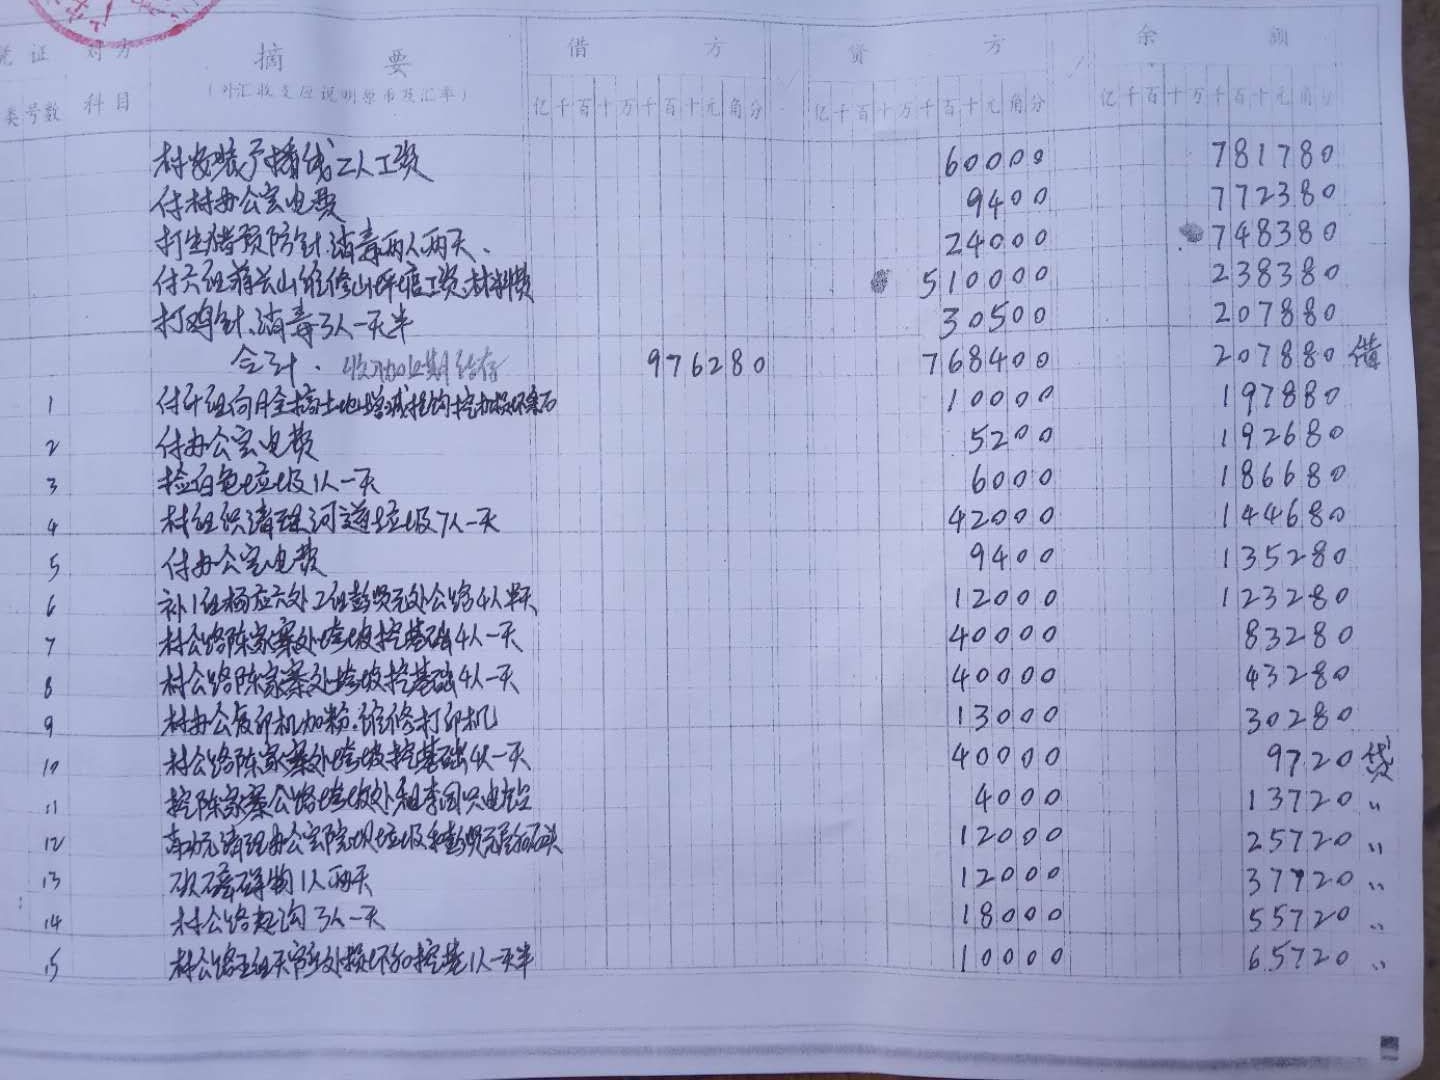 凭证 对方 摘要 借方 贷方 余额
(外汇收支应说明原币及汇率)
类号数 科目 亿千百十万千百十元角分 亿千百十万千百十元角分 亿千百十万千百十元角分
村安装广播线二人工资 60000 781780
付村办公室电费 9400 772380
打生猪预防针消毒两人两天、 24000 748380
付六组蒋兴山维修山坪塘工资、材料费 510000 238380
打鸡针、消毒3人一天半 30500 207880
合计. 收入加上期结存 976280 768400 207880 借
1 10000 197880
2 付办公室电费 5200 192680
3 捡白色垃圾1人一天 6000 186680
4 村组织清理河道垃圾7人一天 42000 144680
5 付办公室电费 9400 135280
6 补1组杨应六处2组彭贤元处公路4人半天 12000 123280
7 村公路陈家寨处垮坡挖基础4人一天 40000 83280
8 村公路陈家寨处垮坡挖基础4人一天 40000 43280
9 村办公复印机加粉.维修打印机 13000 30280
10 村公路陈家寨处垮坡挖基础4人一天 40000 9720 贷
11 挖陈家寨公路垮坡处租李国 电 4000 13720 〃
12 清理办公室院坝垃圾和彭贤元 12000 25720 〃
13 1人两天 12000 37720 〃
14 村公路 沟3人一天 18000 55720 〃
15 村公路 处损坏 挖基1人一天半 10000 65720 〃